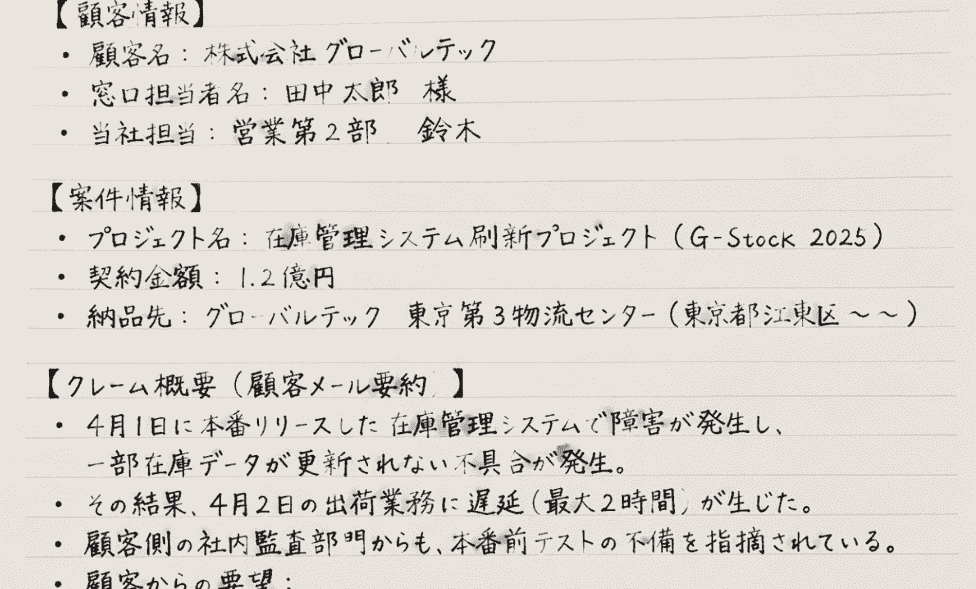 【顧客情報】
・顧客名：株式会社グローバルテック
・窓口担当者名：田中太郎　様
・当社担当：営業第2部　鈴木
【案件情報】
・プロジェクト名：在庫管理システム刷新プロジェクト（G-Stock 2025）
・契約金額：1.2億円
・納品先：グローバルテック　東京第3物流センター（東京都江東区～～）
【クレーム概要（顧客メール要約）】
・4月1日に本番リリースした在庫管理システムで障害が発生し、
一部在庫データが更新されない不具合が発生。
・その結果、4月2日の出荷業務に遅延（最大2時間）が生じた。
・顧客側の社内監査部門からも、本番前テストの不備を指摘されている。
・顧客からの要望：